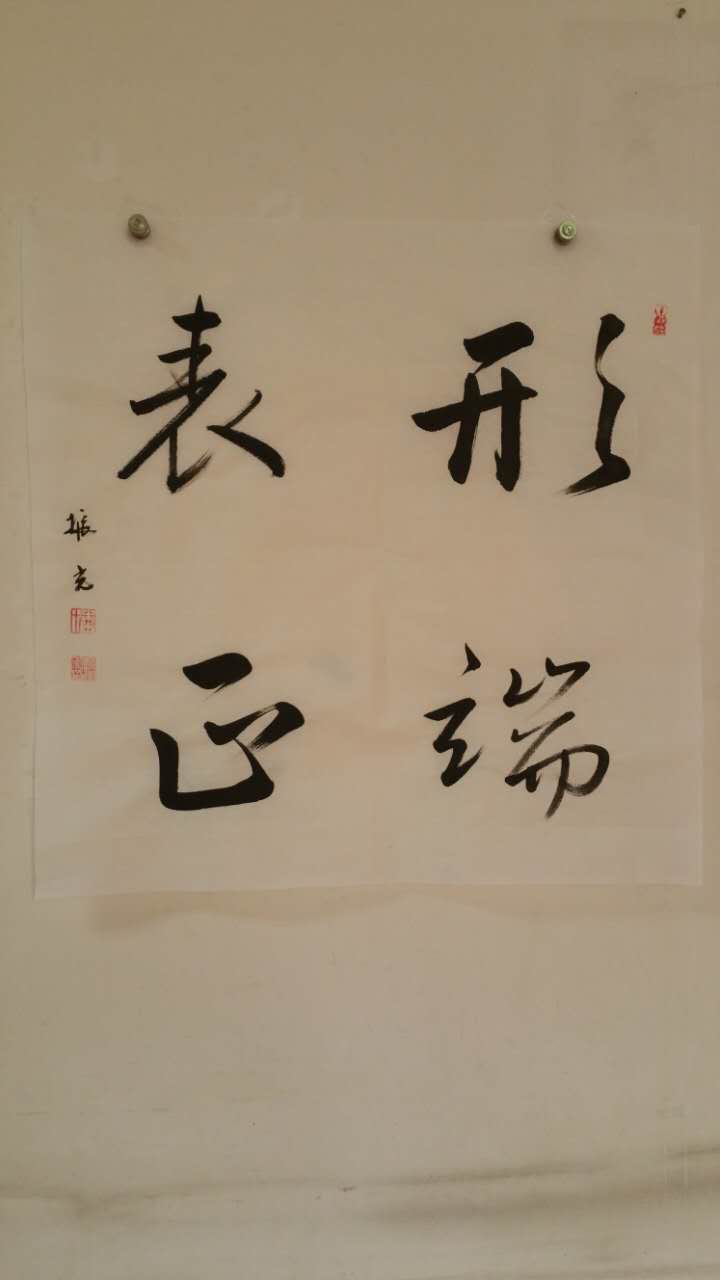 形端
表正
振克